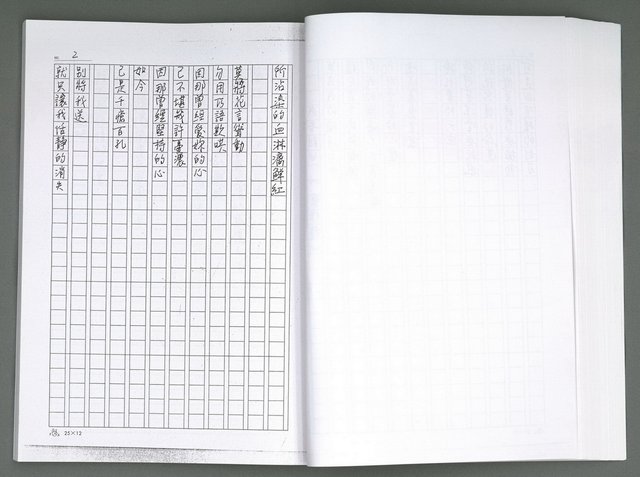 2
所沾染的血淋滿鮮紅
莫將花言聳動
勿用巧語歎哄
因那曾經愛妳的心
已不堪幾許憂濃
因那曾經堅持的心
如今
已是千瘡百孔
別將我送
就只讓我恬靜的消失
25×12